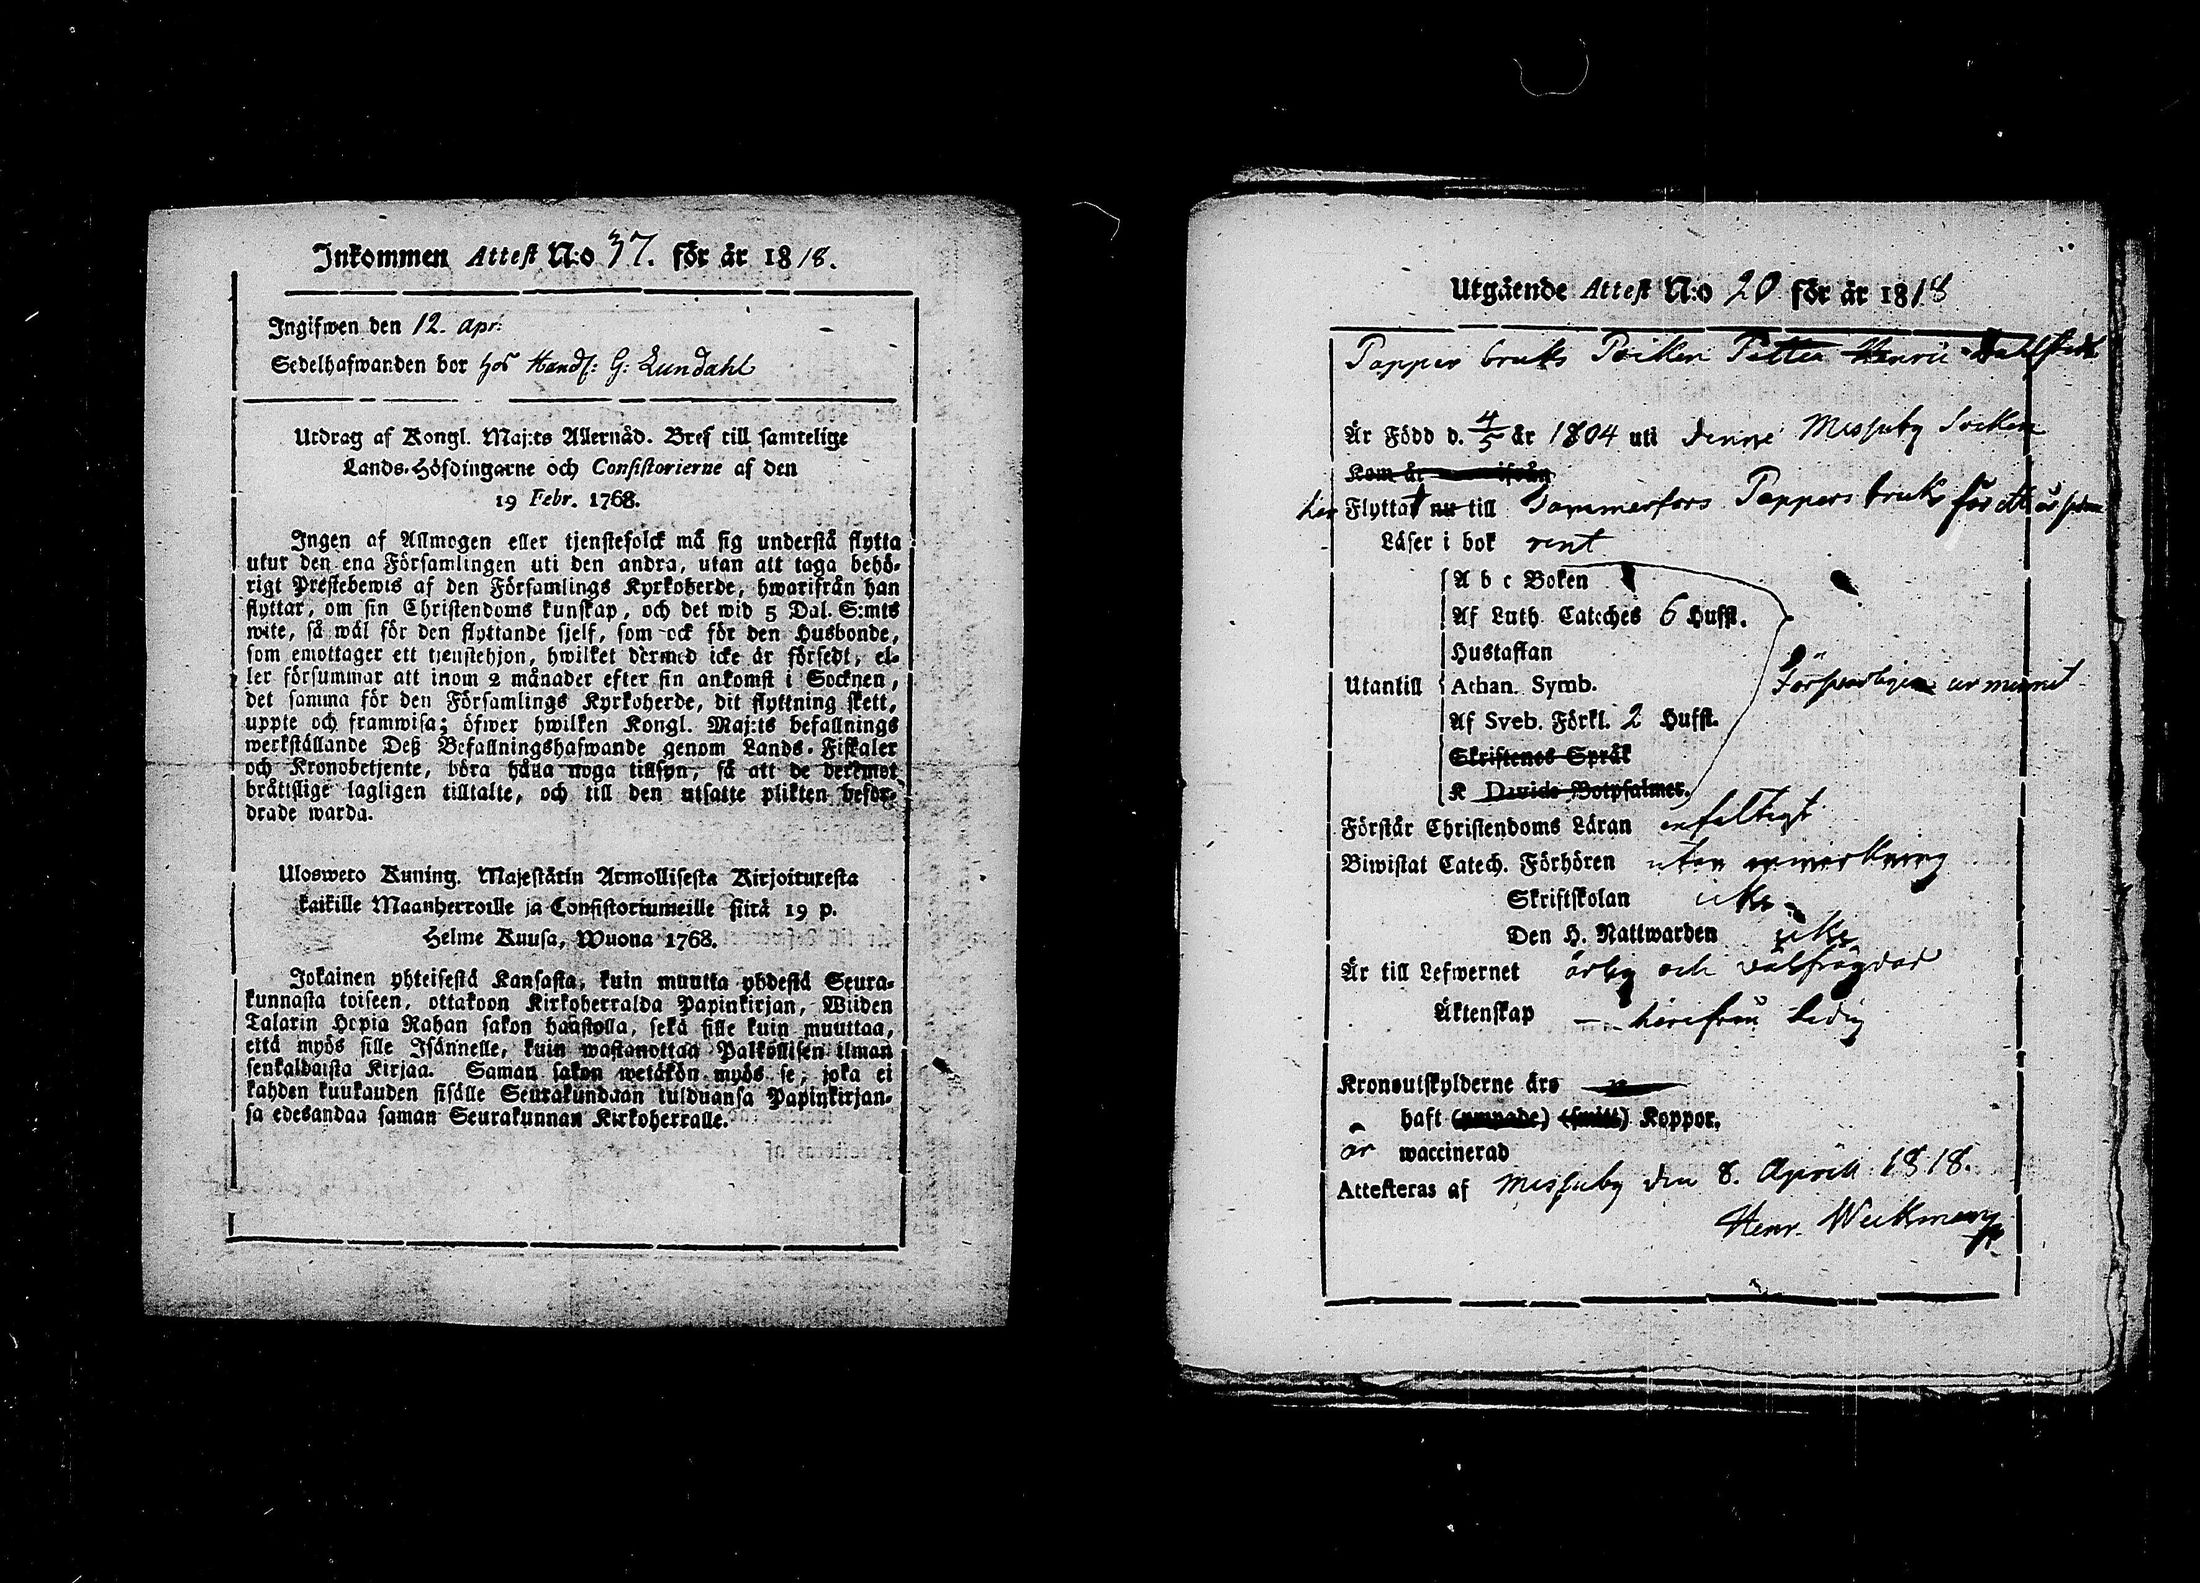 Inkommen Attest N:o 37. för år 1818.
Ingifwen den 12. Apr:
Sedelhafwanden bor hos Handl: G: Lundahl
Utdrag af Kongl. Maj:ts Allernåd. Bref till samtelige
Lands-Höfdingarne och Consistorierne af den
19 Febr. 1768.
Ingen af Allmogen eller tjenstefolck må sig understå flytta
utur den ena Församlingen uti den andra, utan att taga behö-
rigt Prestebewis af den Församlings Kyrkoherde, hwarifrån han
flyttar, om sin Christendoms kunskap, och det wid 5 Dal. S:mts
wite, så wäl för den flyttande sjelf, som ock för den Husbonde,
som emottager ett tjenstehjon, hwilket dermed icke är försedt, el-
ler försummar att inom 2 månader efter sin ankomst i Socknen,
det samma för den Församlings Kyrkoherde, dit flyttning skett,
uppte och framwisa; öfwer hwilken Kongl. Maj:ts befallnings
werkställande Deß Befallningshafwande genom Lands-Fiskaler
och Kronobetjente, böra hålla noga tillsyn, så att de deremot
bråttslige lagligen tilltalte, och till den utsatte plikten beford-
drade warda.
Ulosweto Kuning. Majestätin Armollisesta Kirjoituxesta
kaikille Maanherroille ja Consistoriumeille siitä 19 p.
Helme Kuusa, Wuona 1768.
Jokainen yhteisestä Kansasta, kuin muutta yhdestä Seura-
kunnasta toiseen, ottakoon Kirkoherralda Papinkirjan, Wiiden
Talarin Hopia Rahan sakon haastolla, sekä sille kuin muuttaa,
että myös sille Isännelle, kuin wastanottaa Palkollisen ilman
senkaldaista Kirjaa. Saman sakon wetäkön myös se, joka ei
kahden kuukauden sisälle Seurakundaan tulduansa Papinkirjan-
sa edesandaa saman Seurakunnan Kirkoherralle.
Utgående Attest N:o 20 för år 1818
Pappers bruks Poiken Petter Henric Dahlstedt
Är Född d. 4/5 år 1804 uti denne Messuby Socken
Kom år ifrån
har Flyttat nu till Tammerfors Pappers bruk för ett år sedan
Läser i bok rent
A b c Boken
Af Luth. Cateches 6 Hufst.
Hustaflan
Utantill Athan. Symb.
Af Sveb. Förkl. 2 Hufst.
Skriftenes Språk
K Davids Botpsalmer.
ur minnet
Förstår Christendoms Läran enfaltigt
Biwistat Catech. Förhören utan anmerkning
Skriftskolan icke
Den H. Nattwarden icke
Är till Lefwernet ärlig och välfrägdad
Äktenskap härifrån ledig
Kronoutskylderne års
haft (ympade) (smitt) Koppor.
är waccinerad
Attesteras af Messuby den 8. Aprill 1818.
Henr. Weckman